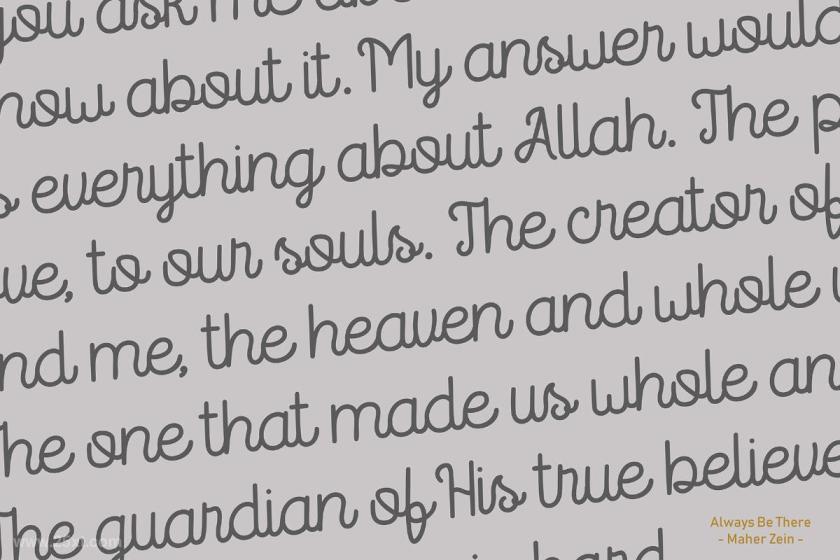 you ask me
now about it. My answer would
everything about Allah. The
to our souls. The creator of
and me, the heaven and whole
The one that made us whole
The guardian of His true believe
hard
Always Be There
- Maher Zein -